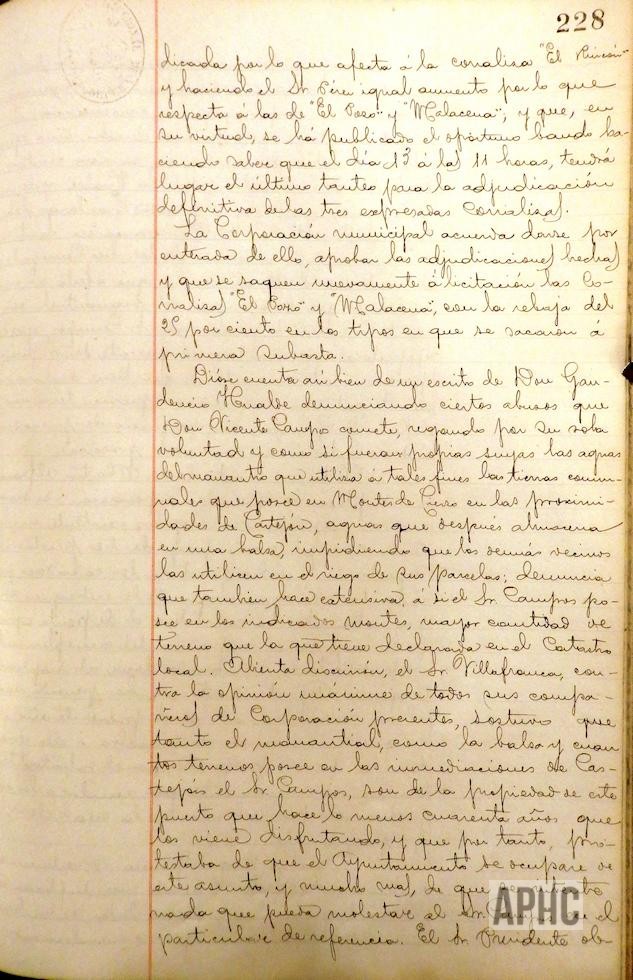 228
dicada por lo que afecta á la corraliza "El Rincón"
y haciendo el Sr. Pérez igual aumento por lo que
respecta á las de "El Pozo" y "Malacena"; y que, en
su virtud, se há publicado el oportuno bando ha-
ciendo saber que el día 13 á las 11 horas, tendrá
lugar el último tanteo para la adjudicación
definitiva de las tres expresadas Corralizas.
La Corporación municipal acuerda darse por
enterada de ello, aprobar las adjudicaciones hechas
y que se saquen nuevamente á licitación las Co-
rralizas "El Pozo" y "Malacena", con la rebaja del
25 por ciento en los tipos en que se sacaron á
primera subasta.
Dióse cuenta así bien de un escrito de Don Gau-
dencio denunciando ciertos abusos que
Don Vicente Campos comete, regando por su sola
voluntad y como si fueran propias suyas las aguas
del manantío que utiliza á tales fines las tierras comu-
nales que posee en Montes de Cierzo en las proximi-
dades de Castejón, aguas que después almacena
en una balsa, impidiendo que los demás vecinos
las utilicen en el riego de sus parcelas; denuncia
que tambien hace extensiva, á si el Sr. Campos po-
see en los indicados montes, mayor cantidad de
terreno que la que tiene declarada en el Catastro
local. Abierta discusión, el Sr. Villafranca, con-
tra la opinión unánime de todos sus compa-
ñeros de Corporación presentes, sostuvo que
tanto el manantial, como la balsa y cuan-
tos terrenos posee en las inmediaciones de Cas-
tejón el Sr. Campos, son de la propiedad de este
puesto que hace lo menos cuarenta años que
los viene disfrutando, y que por tanto, pro-
testaba de que el Ayuntamiento se ocupare de
este asunto, y mucho mas, de que se
nada que pueda molestar al Sr. Campos en el
particular de referencia. El Sr. Presidente ob-
APHC